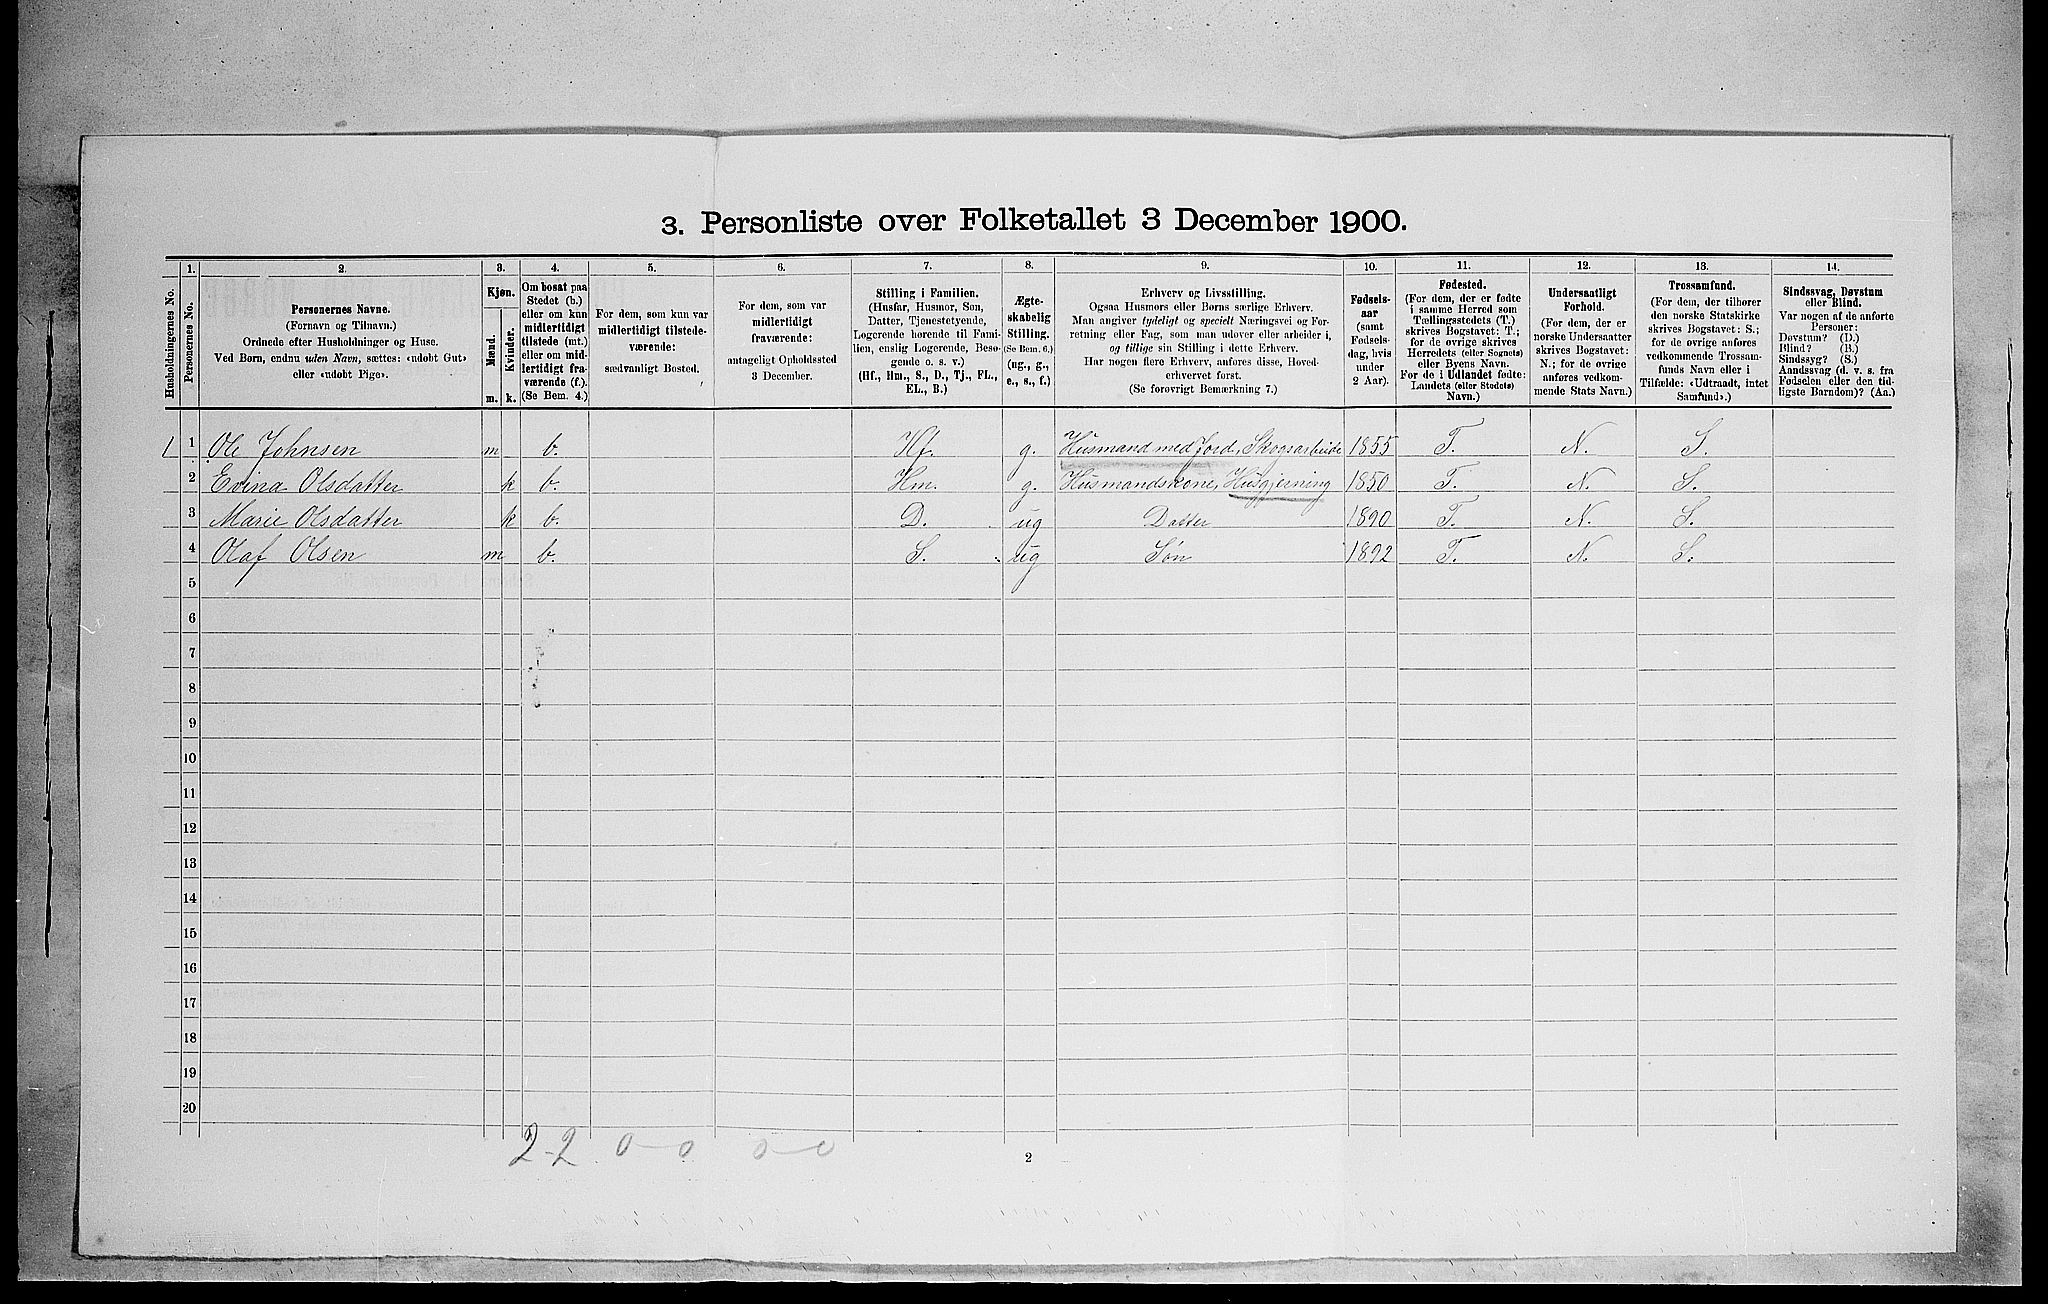 3. Personliste over Folketallet 3 December 1900.
1. 2. 3. 4. 5. 6. 7. 8. 9. 10. 11. 12. 13. 14.
Husholdningernes No.
Personernes No.
Personernes Navne.
(Fornavn og Tilnavn.)
Ordnede efter Husholdninger og Huse.
Ved Børn, endnu uden Navn, sættes: «udøbt Gut»
eller «udøbt Pige».
Kjøn.
Mænd.
Kvinder.
m. k.
Om bosat paa
Stedet (b.)
eller om kun
midlertidigt
tilstede (mt.)
eller om mid-
lertidigt fra-
værende (f.).
(Se Bem. 4.)
For dem, som kun var
midlertidigt tilstede-
værende:
sædvanligt Bosted.
For dem, som var
midlertidigt
fraværende:
antageligt Opholdssted
3 December.
Stilling i Familien.
(Husfar, Husmor, Søn,
Datter, Tjenestetyende,
Logerende hørende til Fami-
lien, enslig Logerende, Besø-
gende o. s. v.)
(Hf., Hm., S., D., Tj., FL.,
EL., B.)
Ægte-
skabelig
Stilling.
(Se Bem. 6.)
(ug., g.,
e., s., f.)
Erhverv og Livsstilling.
Ogsaa Husmors eller Børns særlige Erhverv.
Man angiver tydeligt og specielt Næringsvei og For-
retning eller Fag, som man udøver eller arbeider i,
og tillige sin Stilling i dette Erhverv.
Har nogen flere Erhverv, anføres disse, Hoved-
erhvervet først.
(Se forøvrigt Bemærkning 7.)
Fødsels-
aar
(samt
Fødsels-
dag, hvis
under
2 Aar).
Fødested.
(For dem, der er fødte
i samme Herred som
Tællingsstedets (T.)
skrives Bogstavet: T.;
for de øvrige skrives
Herredets (eller Sognets)
eller Byens Navn.
For de i Udlandet fødte:
Landets (eller Stedets)
Navn.)
Undersaatligt
Forhold.
(For dem, der er
norske Undersaatter
skrives Bogstavet:
N.; for de øvrige
anføres vedkom-
mende Stats Navn.)
Trossamfund.
(For dem, der tilhører
den norske Statskirke
skrives Bogstavet: S.;
for de øvrige anføres
vedkommende Trossam-
funds Navn eller i
Tilfælde: «Udtraadt, intet
Samfund».)
Sindssvag, Døvstum
eller Blind.
Var nogen af de anførte
Personer:
Døvstum? (D.)
Blind? (B.)
Sindssyg? (S.)
Aandssvag (d. v. s. fra
Fødselen eller den tid-
ligste Barndom)? (Aa.)
1 1 Ole Johnsen m b. Hf. g. Husmand med Jord, Skogsarbeide 1855 T. N. S.
2 Evina Olsdatter k b. Hm. g. Husmandskone, Husgjerning 1850 T. N. S.
3 Marie Olsdatter k b. D. ug Datter 1890 T. N. S.
4 Olaf Olsen m b. S. ug Søn 1892 T. N. S.
5
6
7
8
9
10
11
12
13
14
15
16
17
18
19
20
2-2 0-0 0-0
2